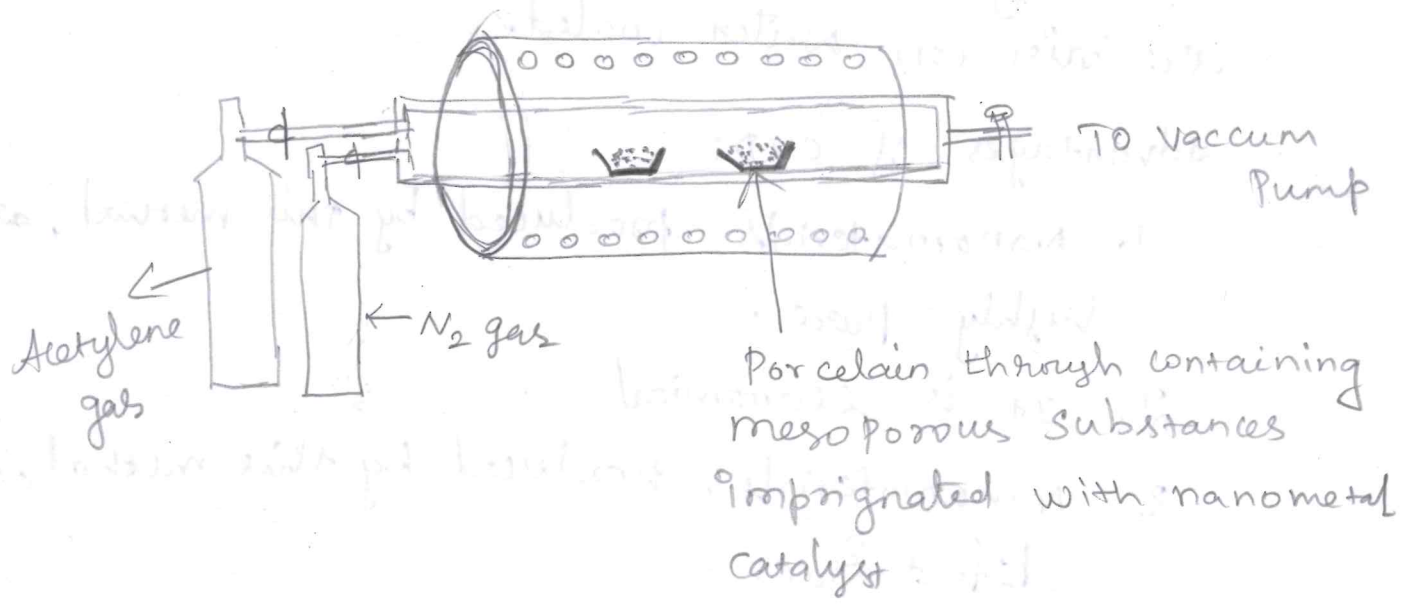 To Vaccum
Pump
Acetylene
gas
N2 gas
Porcelain through containing
mesoporous substances
imprignated with nanometal
catalyst